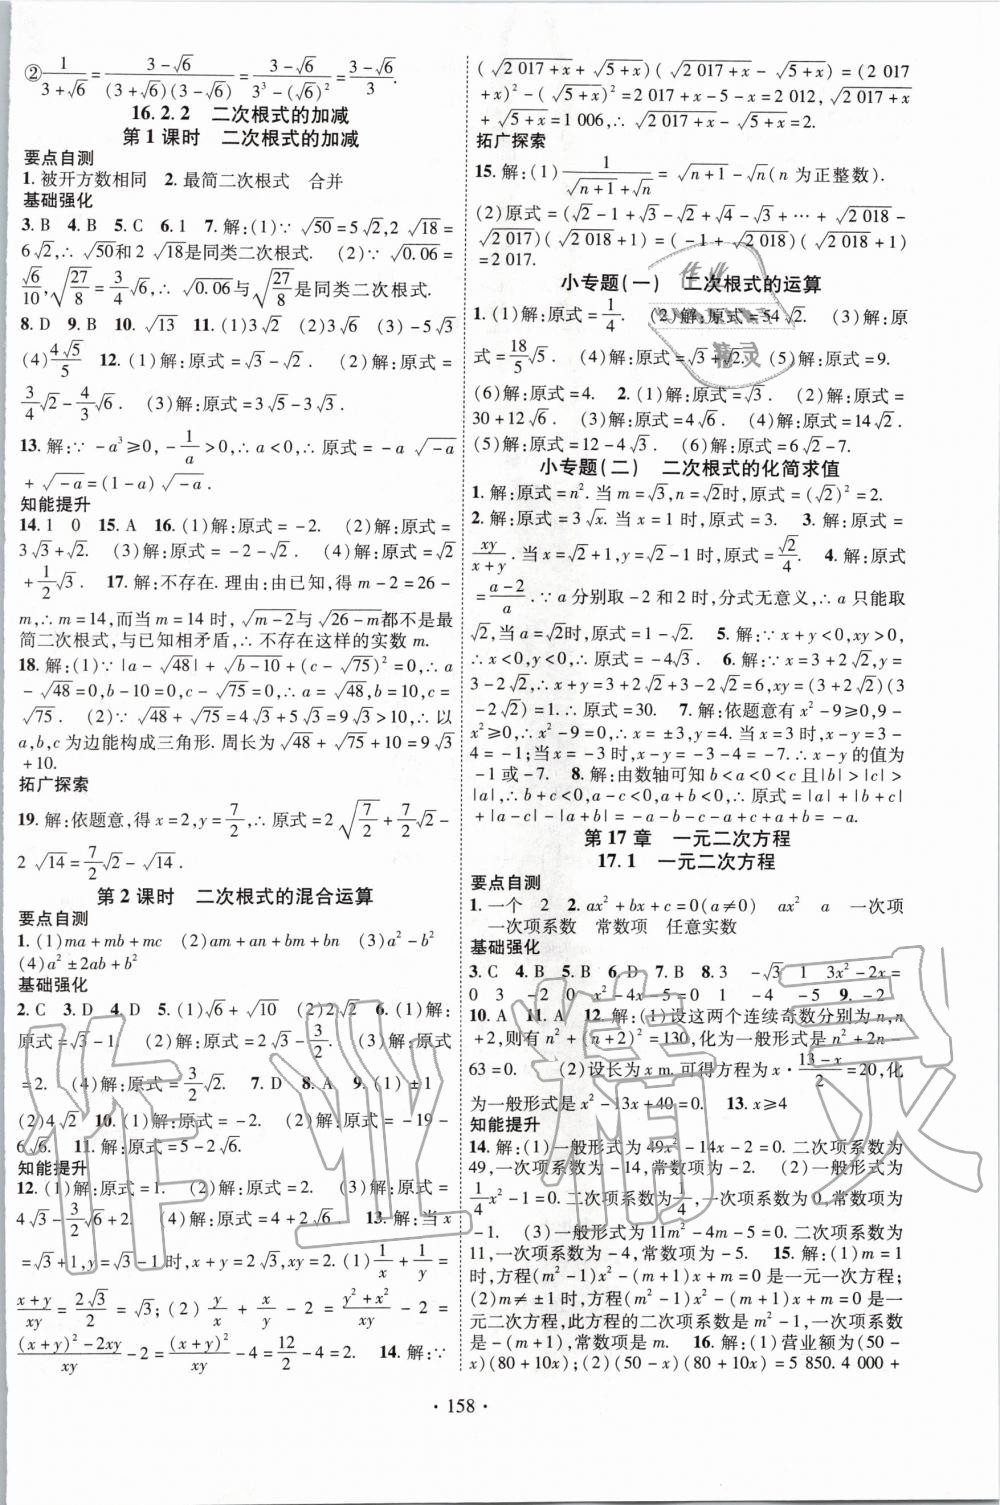 ②1/(3+√6)=(3-√6)/((3+√6)(3-√6))=(3-√6)/(3³-(√6)²)=(3-√6)/3.
16.2.2 二次根式的加减
第1课时 二次根式的加减
要点自测
1. 被开方数相同 2. 最简二次根式 合并
基础强化
3. B 4. B 5. C 6. 1 7. 解:(1)∵√50=5√2,2√18=
6√2,∴√50和2√18是同类二次根式. (2)∵√0.06=
√6/10,√(27/8)=3/4√6,∴√0.06与√(27/8)是同类二次根式.
8. D 9. B 10. √13 11. (1)3√2 (2)√3 (3)-5√3
(4)4√5/5 12. (1)解:原式=√3-√2. (2)解:原式=
3/4√2-3/4√6. (3)解:原式=3√5-3√3.
13. 解:∵-a³≥0,-1/a>0,∴a<0,∴原式=-a√-a
+√-a=(1-a)√-a.
知能提升
14. 1 0 15. A 16. (1)解:原式=-2. (2)解:原式=
3√3+√2. (3)解:原式=-2-√2. (4)解:原式=√2
+1/2√3. 17. 解:不存在. 理由:由已知,得m-2=26-
m,∴m=14,而当m=14时,√m-2与√26-m都不是最
简二次根式,与已知相矛盾,∴不存在这样的实数m.
18. 解:(1)∵|a-√48|+√b-10+(c-√75)²=0,∴a
-√48=0,b-10=0,c-√75=0,∴a=√48,b=10,c=
√75. (2)∵√48+√75=4√3+5√3=9√3>10,∴以
a,b,c为边能构成三角形. 周长为√48+√75+10=9√3
+10.
拓广探索
19. 解:依题意,得x=2,y=7/2,∴原式=2√(7/2)+7/2√2-
2√14=7/2√2-√14.
第2课时 二次根式的混合运算
要点自测
1. (1)ma+mb+mc (2)am+an+bm+bn (3)a²-b²
(4)a²±2ab+b²
基础强化
2. C 3. D 4. D 5. (1)√6+√10 (2)2√2 6. (1)解:
原式=√3-1. (2)解:原式=√3-3/2. (3)解:原式
=2. (4)解:原式=3/2√2. 7. D 8. A 9. (1)±1
(2)4√2 10. (1)解:原式=-2. (2)解:原式=-19-
6√6. 11. 解:原式=5-2√6.
知能提升
12. (1)解:原式=1. (2)解:原式=2. (3)解:原式=
4√3-3/2√6+2. (4)解:原式=4+2√6. 13. 解:当x
=√3+1,y=√3-1时,x+y=2√3,xy=2. (1)1/x+1/y=
(x+y)/xy=2√3/2=√3;(2)y/x+x/y-2=(y²+x²)/xy-2=
((x+y)²-2xy)/xy-2=(x+y)²/xy-4=12/2-4=2. 14. 解:∵
(√2 017+x+√5+x)(√2 017+x-√5+x)=(√2 017
+x)²-(√5+x)²=2 017+x-5-x=2 012,√2 017+x
+√5+x=1 006,∴√2 017+x-√5+x=2.
拓广探索
15. 解:(1)1/(√n+1+√n)=√n+1-√n(n为正整数).
(2)原式=(√2-1+√3-√2+√4-√3+…+√2 018-
√2 017)(√2 018+1)=(-1+√2 018)(√2 018+1)
=2 017.
小专题(一) 二次根式的运算
1. (1)解:原式=1/4. (2)解:原式=54√2. (3)解:原
式=18/5√5. (4)解:原式=√3+√2. (5)解:原式=9.
(6)解:原式=2. 2. (1)解:原式=√6. (2)解:原式=
30+12√6. (3)解:原式=4√6. (4)解:原式=14√2.
(5)解:原式=12-4√3. (6)解:原式=6√2-7.
小专题(二) 二次根式的化简求值
1. 解:原式=n². 当m=√3,n=√2时,原式=(√2)²=2.
2. 解:原式=3√x. 当x=1时,原式=3. 3. 解:原式=
xy/(x+y). 当x=√2+1,y=√2-1时,原式=√2/4. 4. 解:原式
=(a-2)/a. ∵a分别取-2和2时,分式无意义,∴a只能取
√2,当a=√2时,原式=1-√2. 5. 解:∵x+y<0,xy>0,
∴x<0,y<0,∴原式=-4√3. 6. 解:∵x=3+2√2,y=
3-2√2,∴x+y=3+2√2+3-2√2=6,xy=(3+2√2)(3
-2√2)=1. ∴原式=30. 7. 解:依题意有x²-9≥0,9-
x²≥0,∴x²-9=0,∴x=±3,y=4. 当x=3时,x-y=3-
4=-1;当x=-3时,x-y=-3-4=-7. ∴x-y的值为
-1或-7. 8. 解:由数轴可知b<a<0<c且|b|>|c|>
|a|,∴b+c<0,a-c<0,a+b<0,∴原式=|a|+|b+c|
+|a-c|-|a+b|=-a-b-c+c-a+a+b=-a.
第17章 一元二次方程
17.1 一元二次方程
要点自测
1. 一个 2 2. ax²+bx+c=0(a≠0) ax² a 一次项
一次项系数 常数项 任意实数
基础强化
3. C 4. B 5. B 6. D 7. B 8. 3 -√3 1 3x²-2x=
0 3 -2 0 x²-4x-5=0 1 -4 -5 9. -2
10. A 11. A 12. 解:(1)设这两个连续奇数分别为n,n
+2,则有n²+(n+2)²=130,化为一般形式为n²+2n-
63=0. (2)设长为x m. 可得方程为x·(13-x)/2=20,化
为一般形式是x²-13x+40=0. 13. x≥4
知能提升
14. 解:(1)一般形式为49x²-14x-2=0. 二次项系数为
49,一次项系数为-14,常数项为-2. (2)一般形式为
1/4x²-1=0. 二次项系数为1/4,一次项系数为0,常数项为
-1. (3)一般形式为11m²-4m-5=0. 二次项系数为
11,一次项系数为-4,常数项为-5. 15. 解:(1)m=1
时,方程(m²-1)x²-(m+1)x+m=0是一元一次方程;
(2)m≠±1时,方程(m²-1)x²-(m+1)x+m=0是一
元二次方程,此方程的二次项系数是m²-1,一次项系数是
-(m+1),常数项是m. 16. 解:(1)营业额为(50-
x)(80+10x);(2)(50-x)(80+10x)=5 850. 4 000+
·158·
作业
精灵
作业精灵